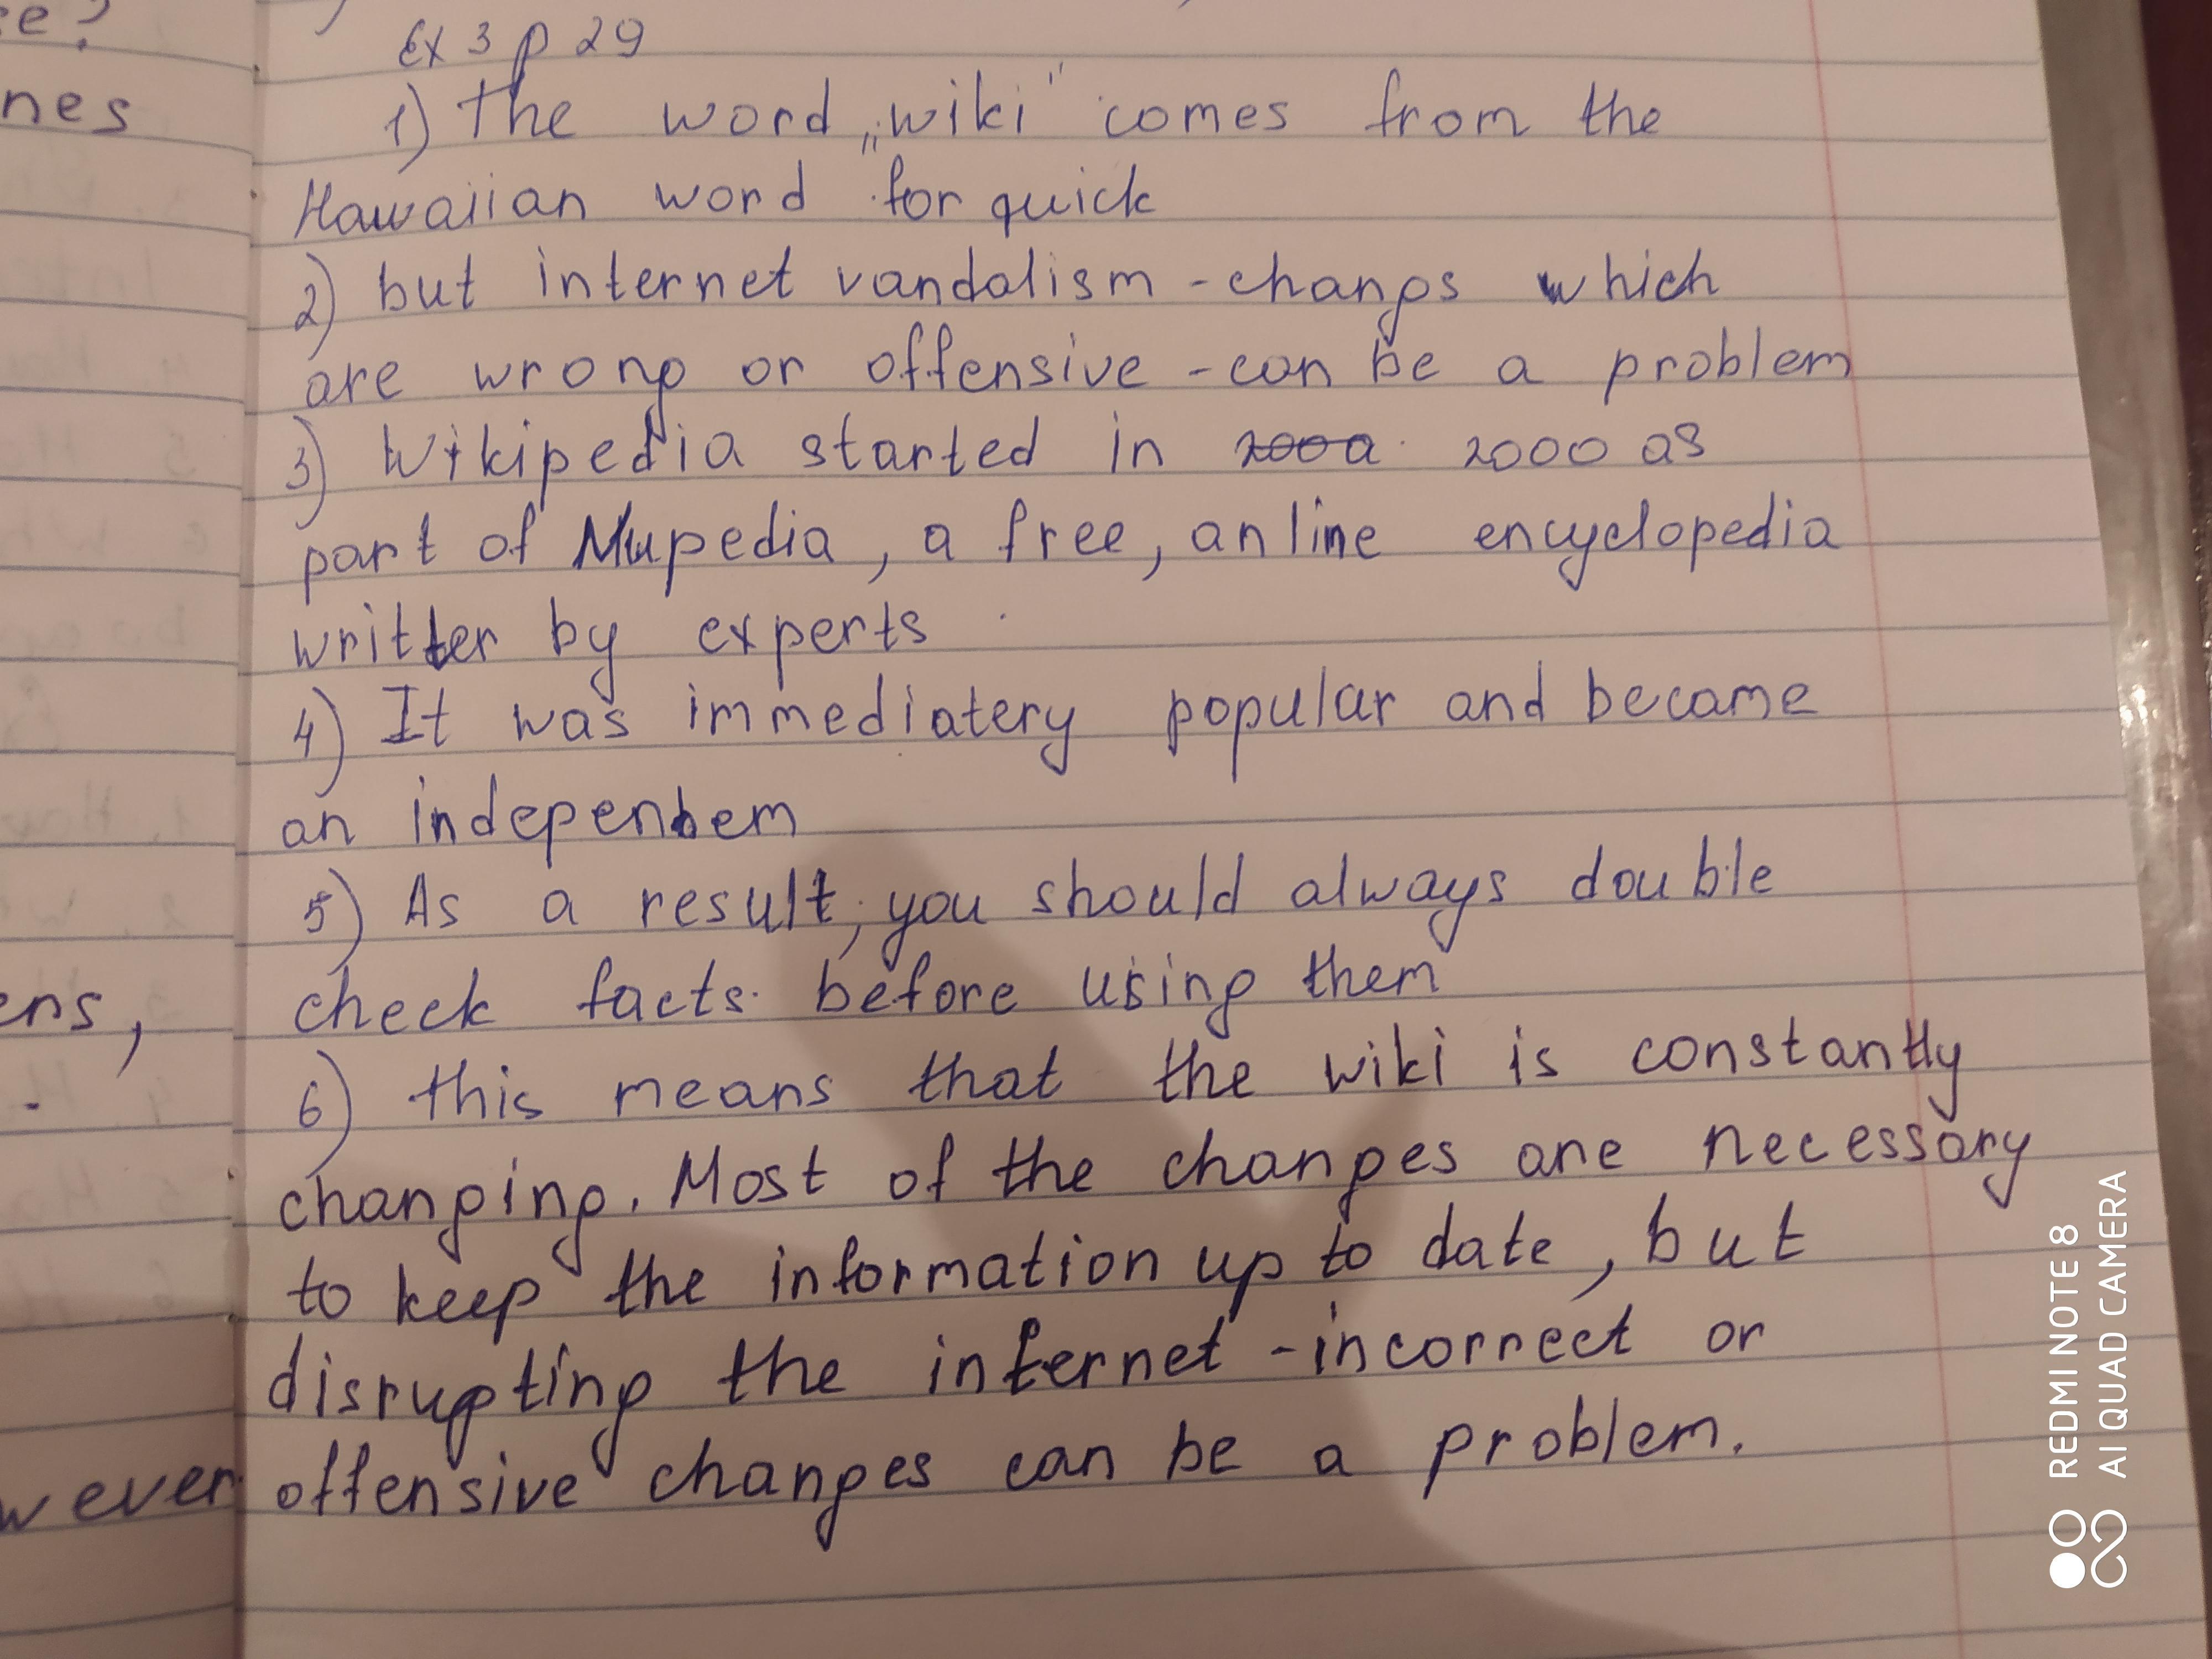 ce?
nes
ens,
wever
Ex 3 p 29
1) The word „wiki" comes from the
Hawaiian word for quick
2) but internet vandalism - changs which
are wrong or offensive - can be a problem
3) Wikipedia started in 2000 as
part of Nupedia, a free, anline encyclopedia
writter by experts
4) It was immediatery popular and became
an indepenbem
5) As a result, you should always double
check facts before using them
6) this means that the wiki is constantly
changing. Most of the changes are necessary
to keep the information up to date, but
disrupting the internet - incorrect or
offensive changes can be a problem.
REDMI NOTE 8
AI QUAD CAMERA